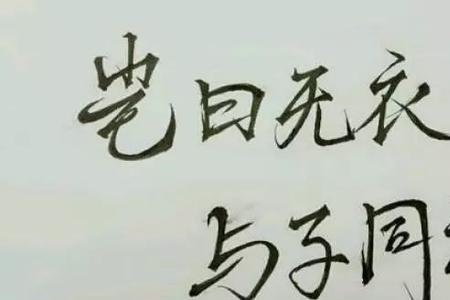 岂曰无衣
与子同